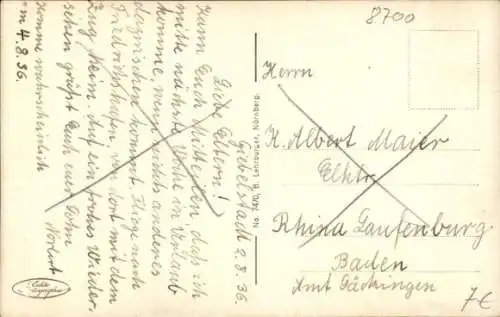 Giebelstadt 2.8.36.
Liebe Eltern!
Kann Euch Mitteilen daß ich
mitte nächste Woche in Urlaub
komme, wenn nichts anderes
dazwischen kommt. Fliege nach
Friedrichshafen, von dort mit dem
Zug Heim. Auf ein frohes Wieder-
sehen grüßt Euch euer Sohn
Norbert
Komme wahrscheinlich
am 4.8.36.
No. 1470, B. Lehrburger, Nürnberg.
Echte
8700
Herrn
K. Albert Maier
Elktr.
Rhina Laufenburg
Baden
Amt Säckingen
7€